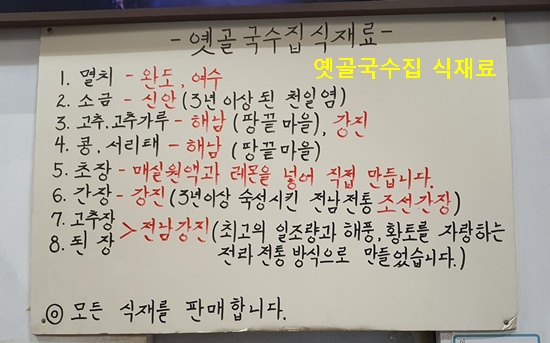 - 옛골국수집식재료 -
옛골국수집 식재료
1. 멸치 - 완도, 여수
2. 소금 - 신안 (3년이상 된 천일염)
3. 고추.고추가루 - 해남 (땅끝마을), 강진
4. 콩, 서리태 - 해남 (땅끝마을)
5. 초장 - 매실원액과 레몬을 넣어 직접 만듭니다.
6. 간장 - 강진 (3년이상 숙성시킨 전남전통 조선간장)
7. 고추장
8. 된 장 > 전남강진 (최고의 일조량과 해풍, 황토를 자랑하는
전라 전통 방식으로 만들었습니다.)
◎ 모든 식재를 판매합니다.